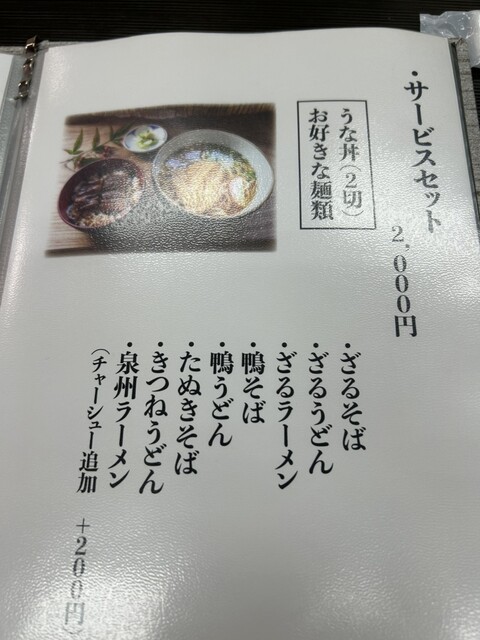 ・サービスセット
2,000円
うな丼(2切)
お好きな麺類
・ざるそば
・ざるうどん
・ざるラーメン
・鴨そば
・鴨うどん
・たぬきそば
・きつねうどん
・泉州ラーメン
(チャーシュー追加 +200円)